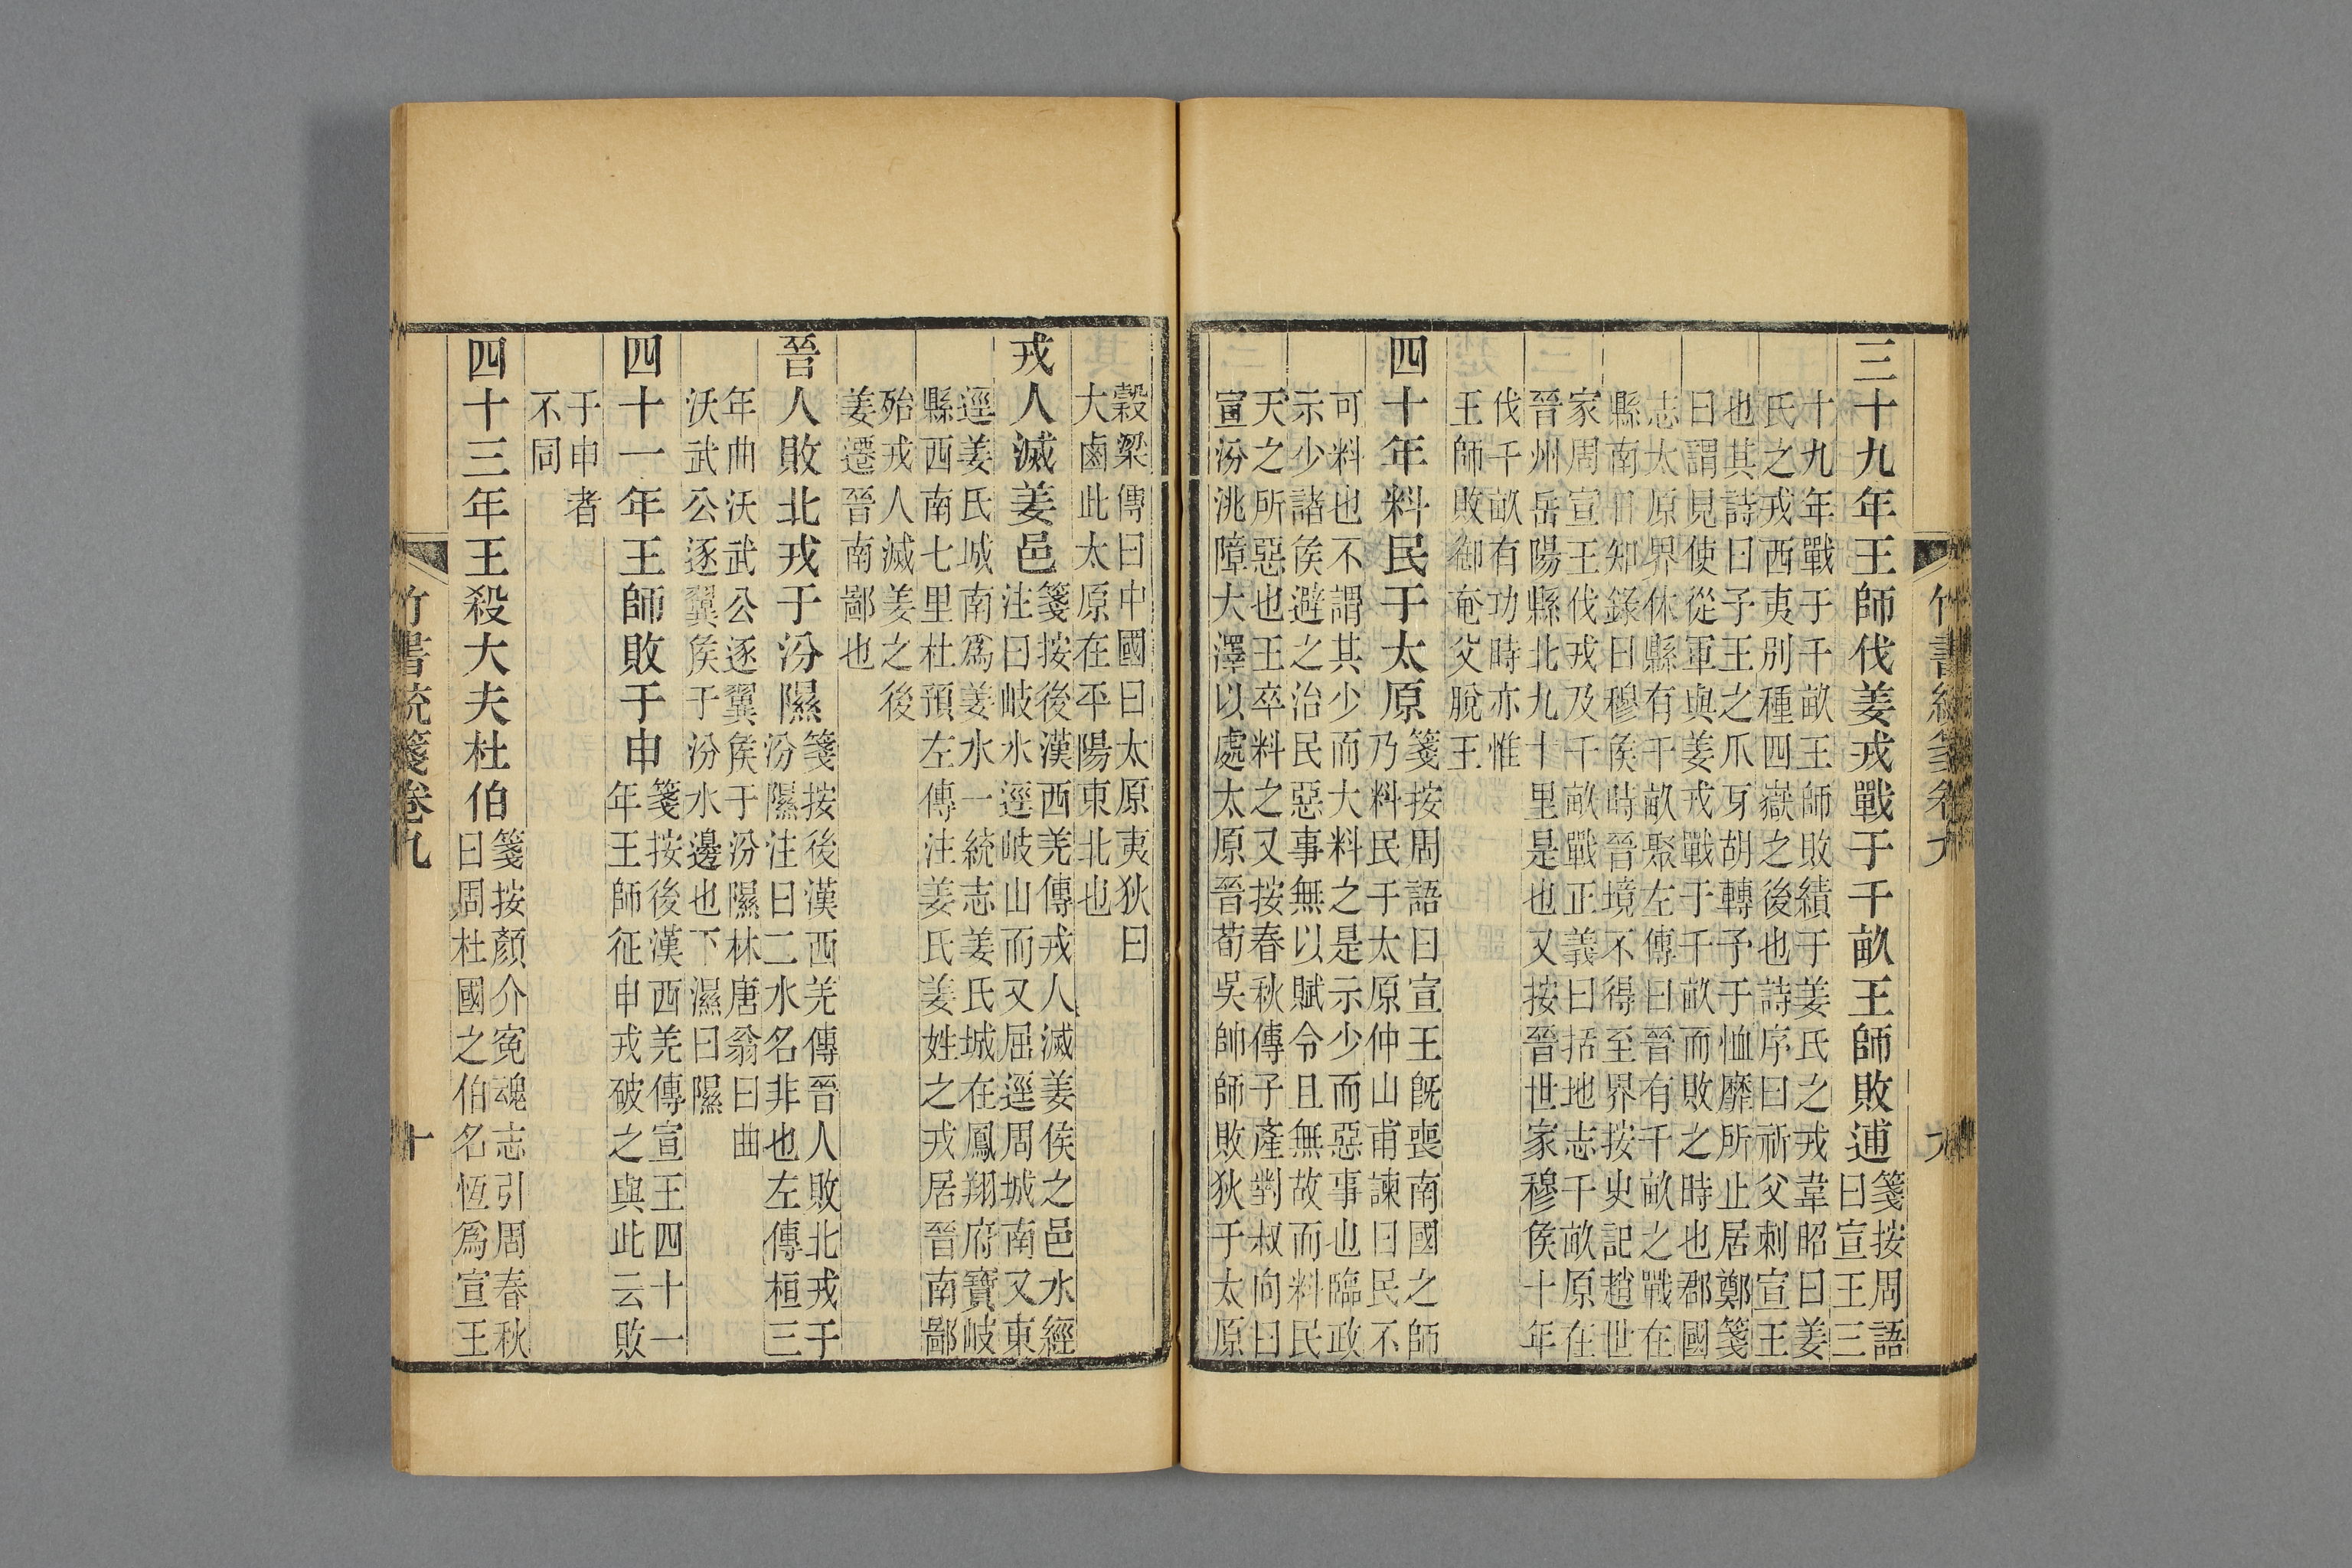 竹書統箋卷九 九
三十九年王師伐姜戎戰于千畝王師敗逋
箋按周語
曰宣王三
十九年戰于千畝王師敗績于姜氏之戎韋昭曰姜
氏之戎西夷別種四嶽之後也詩序曰祈父刺宣王
也其詩曰子王之爪牙胡轉予于恤靡所止居鄭箋
曰謂見使從軍與姜戎戰于千畝而敗之時也郡國
志太原界休縣有千畝聚左傳曰晉有千畝之戰在
縣南日知錄曰穆侯時晉境不得至界按史記趙世
家周宣王伐戎及千畝戰正義曰括地志千畝原在
晉州岳陽縣北九十里是也又按晉世家穆侯十年
伐千畝有功時亦惟
王師敗御奄父脫王
四十年料民于太原
箋按周語曰宣王旣喪南國之師
乃料民于太原仲山甫諫曰民不
可料也不謂其少而大料之是示少而惡事也臨政
示少諸侯避之治民惡事無以賦令且無故而料民
天之所惡也王卒料之又按春秋傳子產對叔向曰
宣汾洮障大澤以處太原晉荀吳帥師敗狄于太原
穀梁傳曰中國曰太原夷狄曰
大鹵此太原在平陽東北也
戎人滅姜邑
箋按後漢西羌傳戎人滅姜侯之邑水經
注曰岐水逕岐山而又屈逕周城南又東
逕姜氏城南爲姜水一統志姜氏城在鳳翔府寶岐
縣西南七里杜預左傳注姜氏姜姓之戎居晉南鄙
殆戎人滅姜之後
姜遷晉南鄙也
晉人敗北戎于汾隰
箋按後漢西羌傳晉人敗北戎于
汾隰注曰二水名非也左傳桓三
年曲沃武公逐翼侯于汾隰林唐翁曰曲
沃武公逐翼侯于汾水邊也下濕曰隰
四十一年王師敗于申
箋按後漢西羌傳宣王四十一
年王師征申戎破之與此云敗
于申者
不同
四十三年王殺大夫杜伯
箋按顏介寃魂志引周春秋
曰周杜國之伯名恆爲宣王
竹書統箋卷九 十